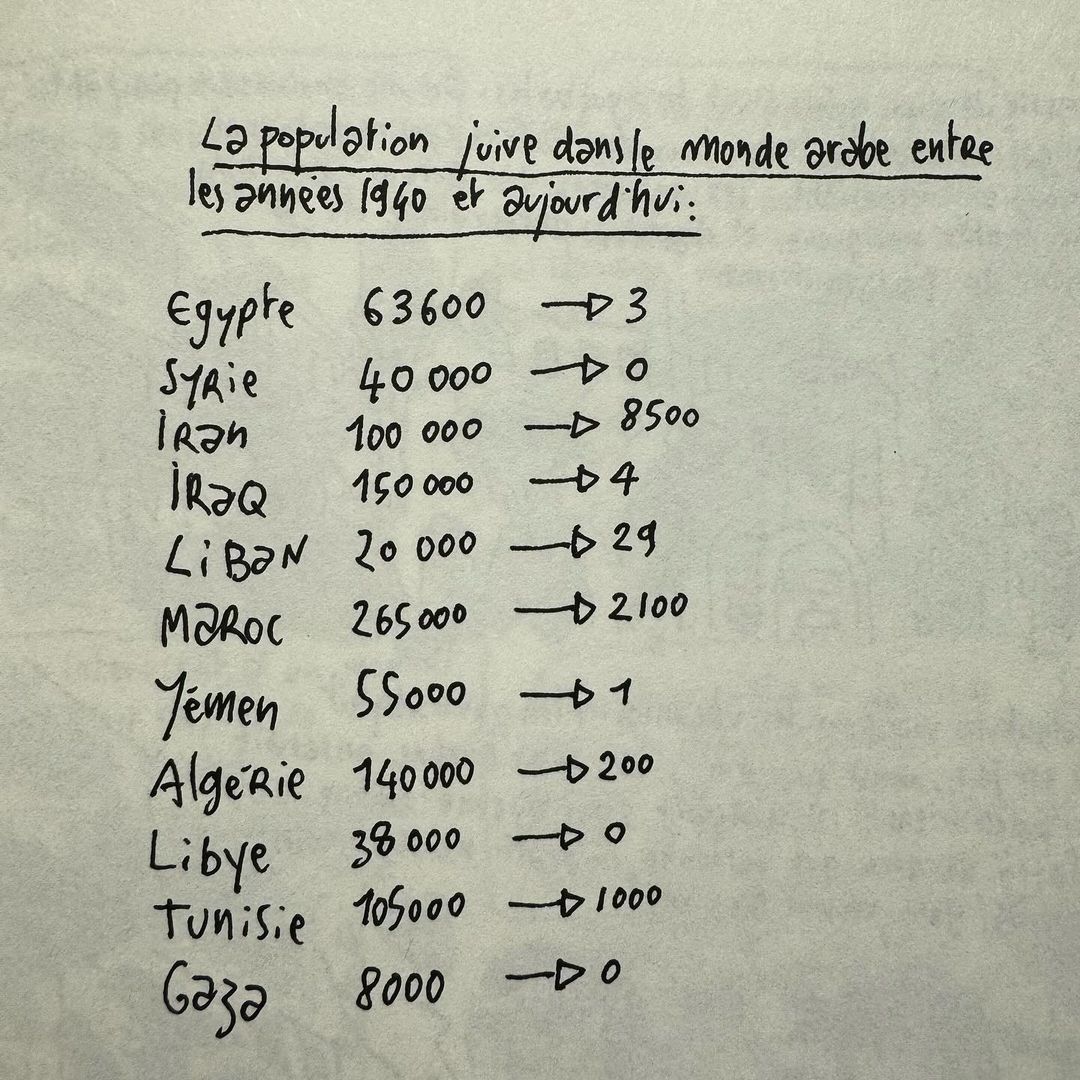 La population juive dans le monde arabe entre
les années 1940 et aujourd'hui:
Egypte 63600 → 3
Syrie 40 000 → 0
Iran 100 000 → 8500
Iraq 150 000 → 4
Liban 20 000 → 29
Maroc 265000 → 2100
Yémen 55000 → 1
Algérie 140000 → 200
Libye 38 000 → 0
Tunisie 105000 → 1000
Gaza 8000 → 0